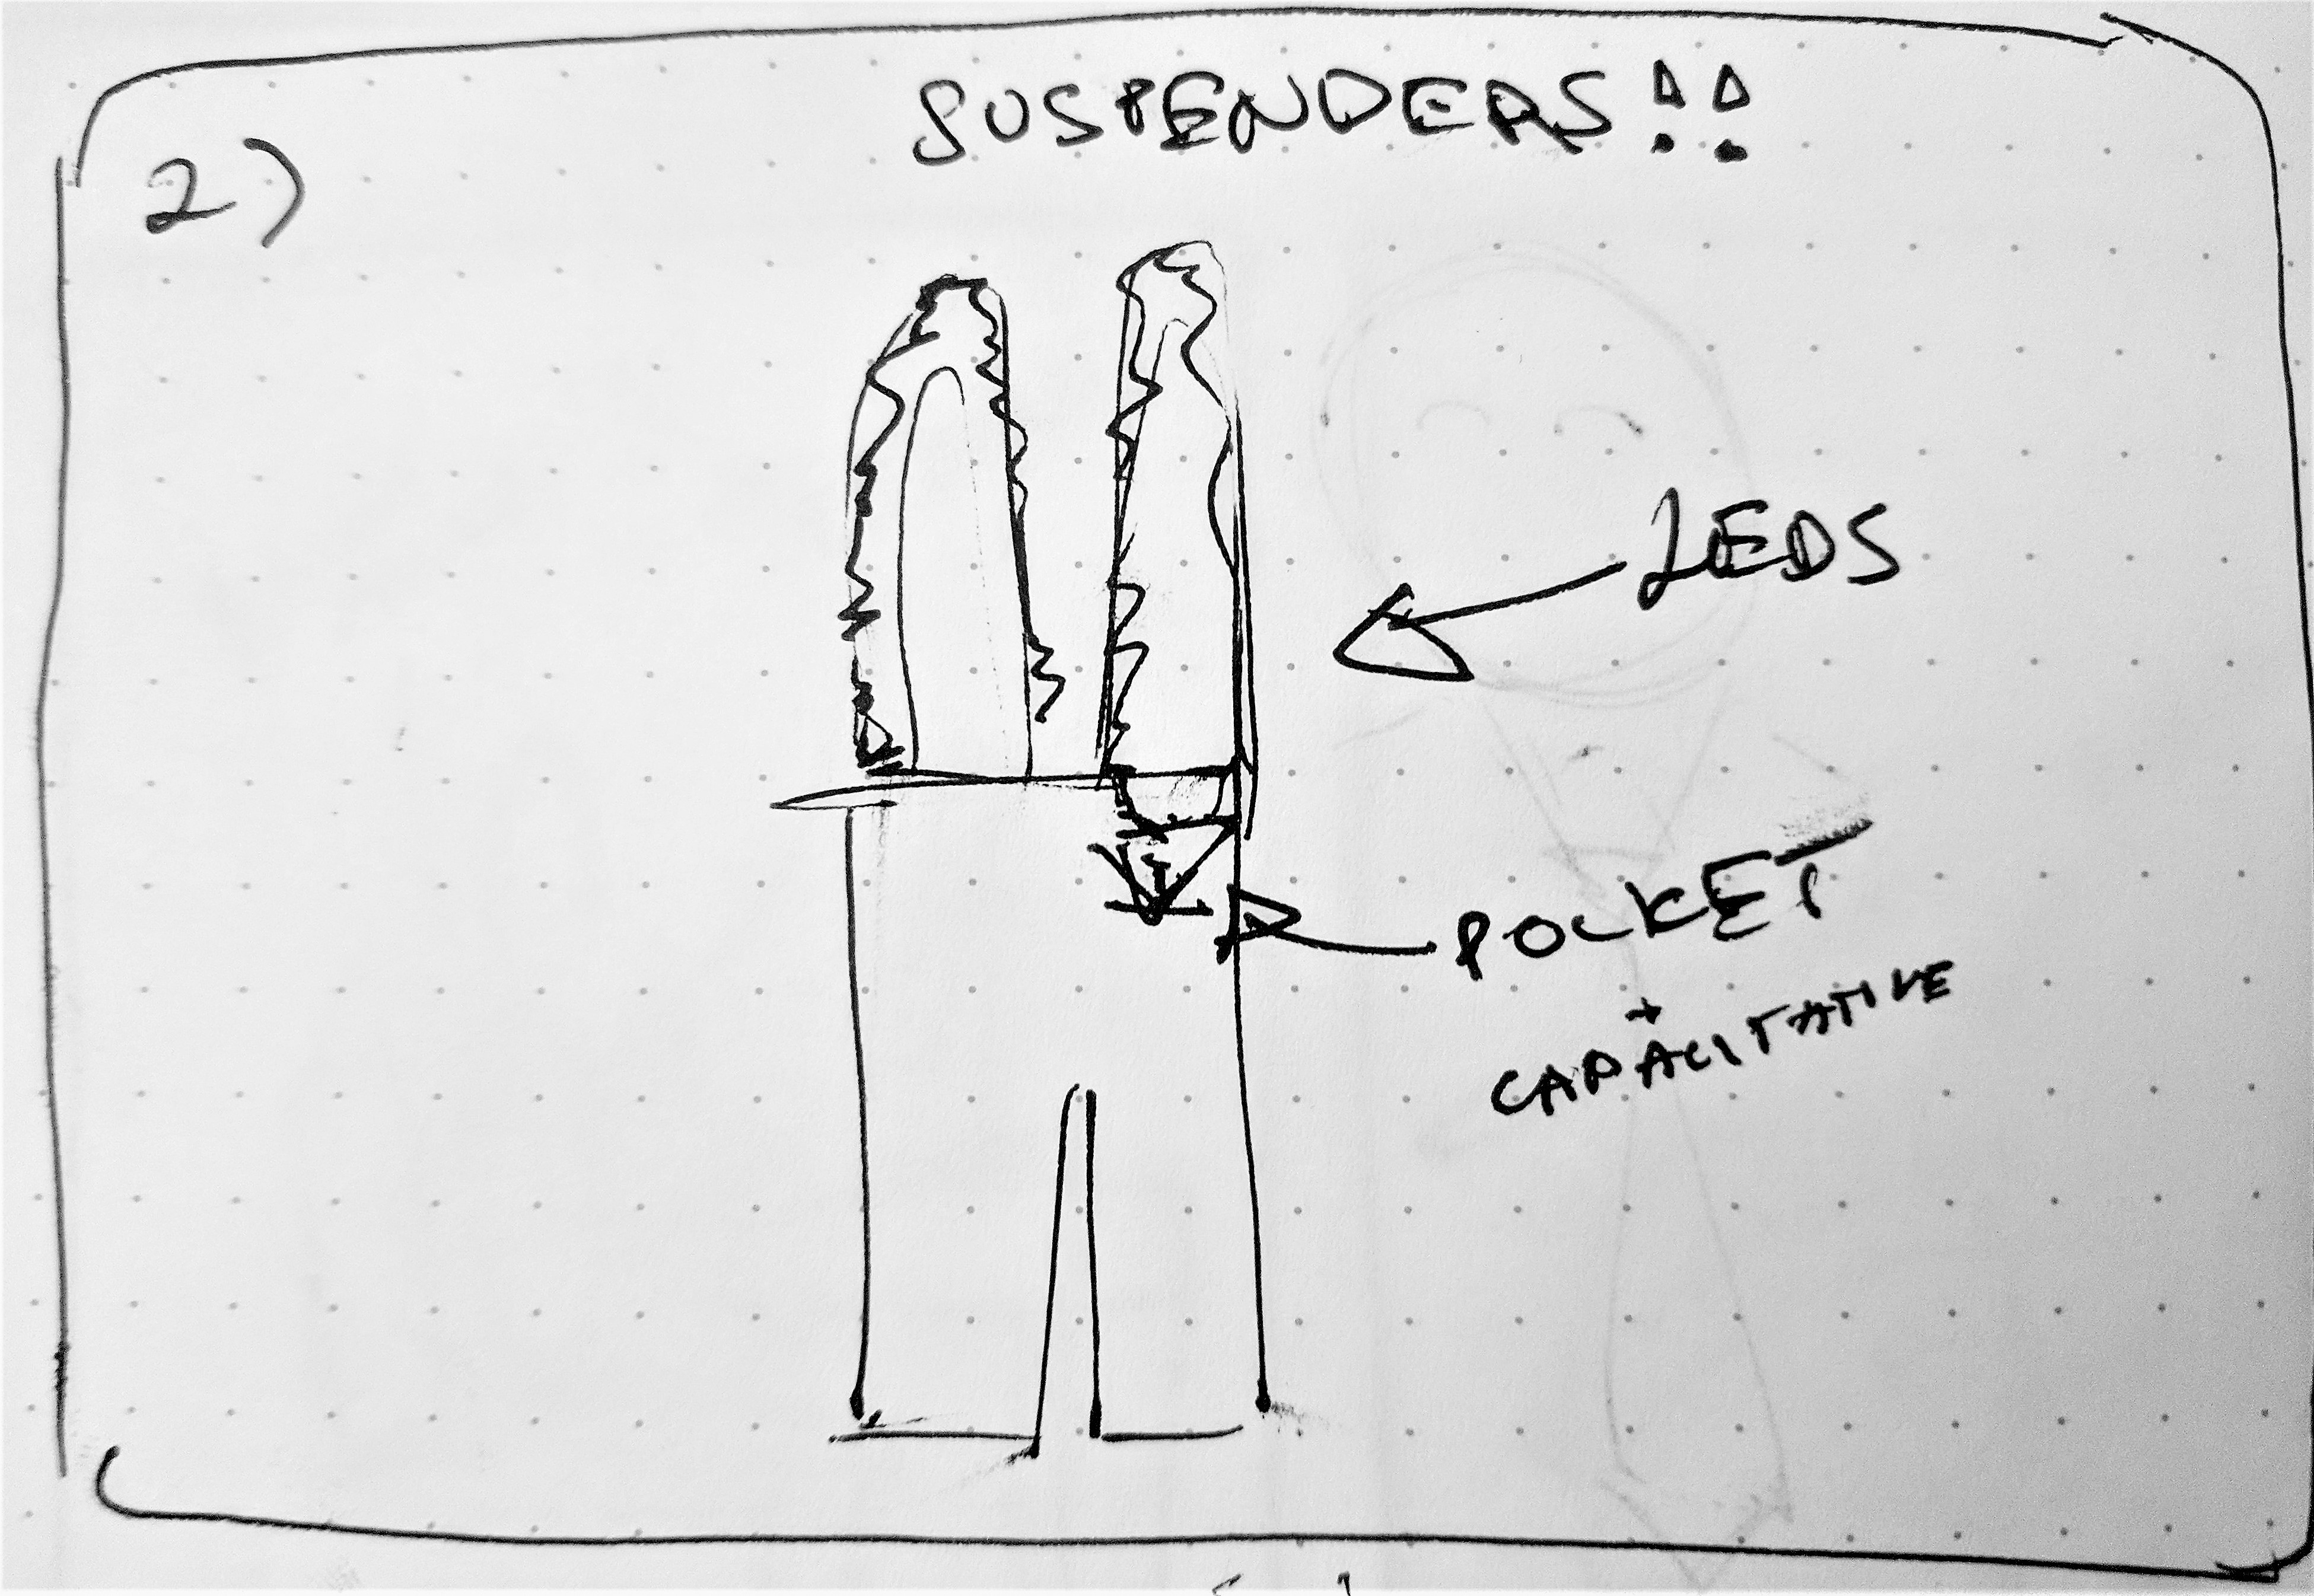 SUSPENDERS!!
2)
LEDS
POCKET
+
CAPACITATIVE